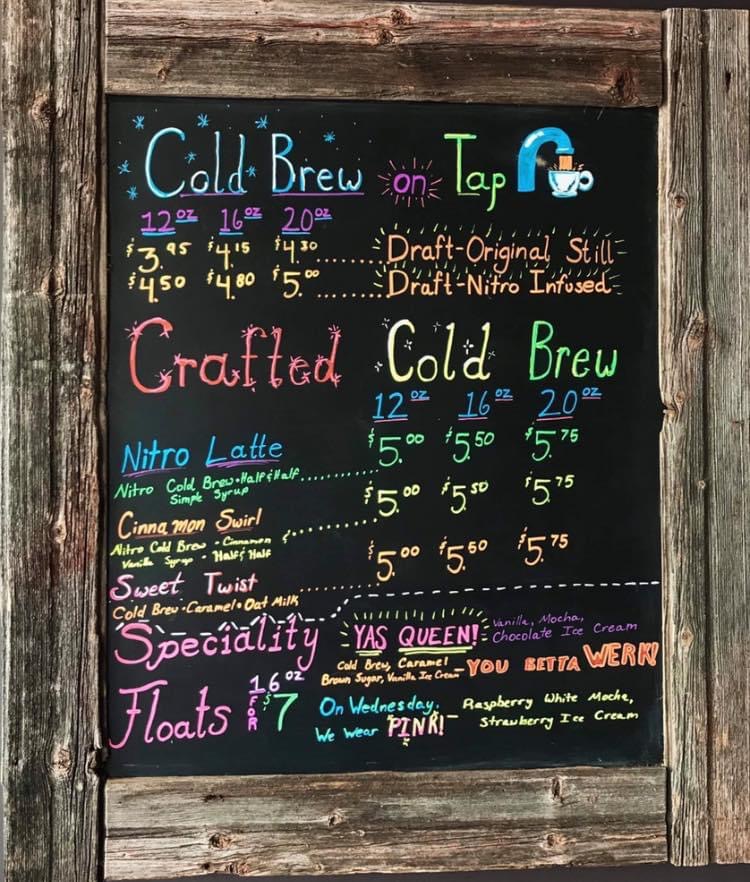 Cold Brew on Tap
12 oz 16 oz 20 oz
$3.95 $4.15 $4.30 ...... Draft-Original Still
$4.50 $4.80 $5.00 ....... Draft-Nitro Infused
Crafted Cold Brew
12 oz 16 oz 20 oz
Nitro Latte $5.00 $5.50 $5.75
Nitro Cold Brew • Half & Half
Simple Syrup
Cinnamon Swirl $5.00 $5.50 $5.75
Nitro Cold Brew • Cinnamon
Vanilla Syrup • Half & Half
Sweet Twist $5.00 $5.50 $5.75
Cold Brew • Caramel • Oat Milk
Speciality
Floats 16 oz FOR $7
YAS QUEEN! - Vanilla, Mocha,
Chocolate Ice Cream
Cold Brew, Caramel - YOU BETTA WERK!
Brown Sugar, Vanilla Ice Cream
On Wednesday, - Raspberry White Mocha,
We Wear PINK! Strawberry Ice Cream